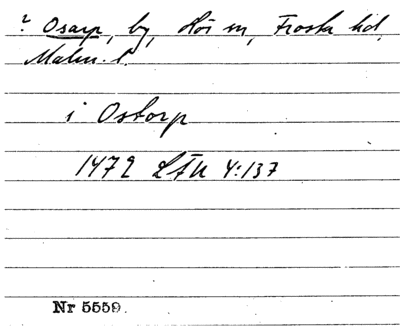 ? Osarp, by, Hör sn, Frosta hd,
Malm. l.
i Ostorp
1472 LÄU 4:137
Nr 5559.